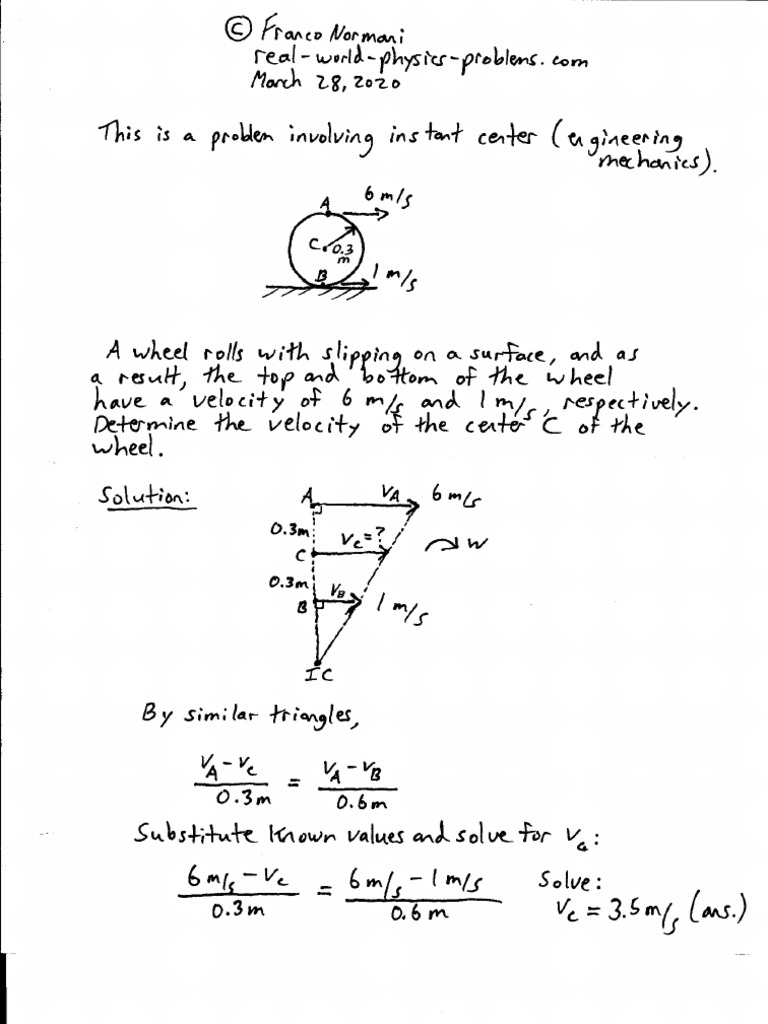 © Franco Normani
real-world-physics-problems.com
March 28, 2020
This is a problem involving instant center (engineering
mechanics).
A 6 m/s
C 0.3
m
B 1 m/s
A wheel rolls with slipping on a surface, and as
a result, the top and bottom of the wheel
have a velocity of 6 m/s and 1 m/s, respectively.
Determine the velocity of the center C of the
wheel.
Solution:
A VA 6 m/s
0.3m
C Vc=? w
0.3m
B VB 1 m/s
IC
By similar triangles,
VA-Vc / 0.3m = VA-VB / 0.6m
Substitute known values and solve for Va:
6 m/s - Vc / 0.3m = 6 m/s - 1 m/s / 0.6m Solve:
Vc = 3.5 m/s (ans.)